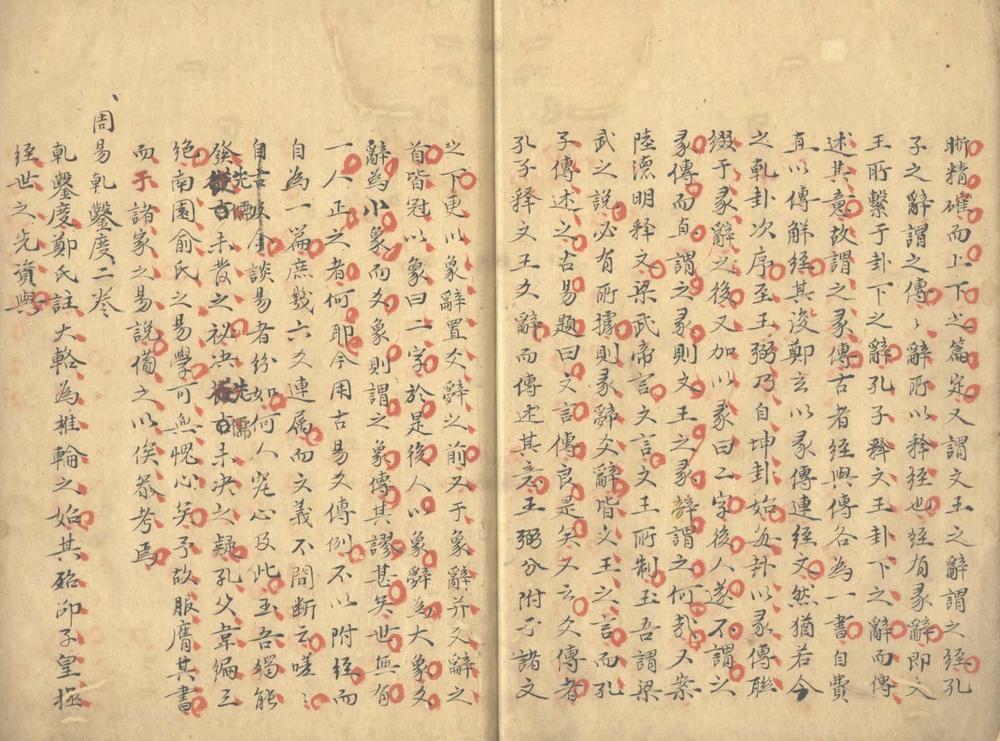 晣精確而上下之篇定又謂文王之辭謂之經孔
子之辭謂之傳〻辭所以释經也經有彖辭即文
王所繫于卦下之辭孔子释文王卦下之辭而傳
述其意故謂之彖傳古者經與傳各為一書自費
直以傳解經其後鄭玄以彖傳連經文然猶若今
之乹卦次序至王弼乃自坤卦始每卦以彖傳聮
綴于彖辭之後又加以彖曰二字後人遂不謂之
彖傳而直謂之彖則文王之彖辭謂之何哉又案
陸德明释文梁武帝言文言文王所制玉吾謂梁
武之說必有所據則彖辭爻辭皆文王之言而孔
子傳述之古易題曰文言傳良是矣又云爻傳者
孔子释文王爻辭而傳述其意王弼分附于諸爻
之下更以象辭置爻辭之前又于象辭并爻辭之
首皆冠以象曰二字於是後人以象辭為大象爻
辭為小象而爻象則謂之象傳其謬甚矣世無有
一人正之者何耶今用古易爻傳例不以附經而
自為一篇庶幾六爻連属而文義不間断云嗟〻
自古迄今談易者紛如何人究心及此玉吾獨能
發先儒未發之祕决先儒未决之疑孔父韋编三
绝南園俞氏之易學可無愧心矣予故服膺其書
而于諸家之易說俻之以俟叅考焉
周易乹鑿度二卷
乹鑿度鄭氏註大輅為椎輪之始其殆卲子皇極
經世之先資與